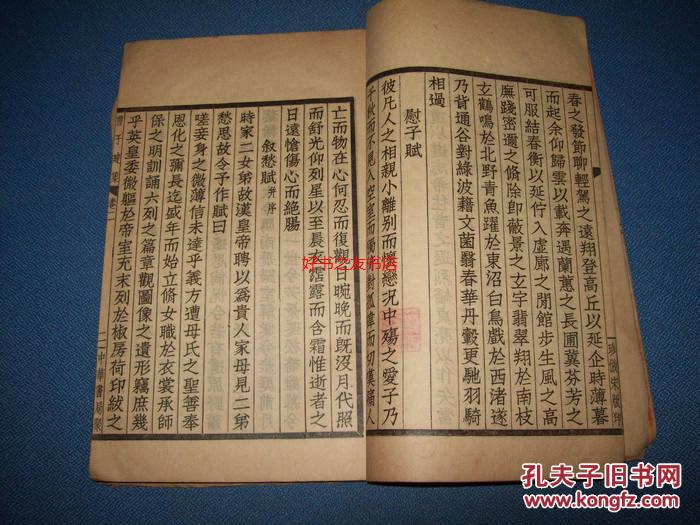 春之發節聊輕駕之遠翔登高丘以延企時薄暮
而起余仰歸雲以載奔遇蘭蕙之長圃冀芬芳之
可服結春衡以延佇入虛廊之閒館步生風之高
廡踐密邇之脩除即蔽景之玄宇翡翠翔於南枝
玄鶴鳴於北野青魚躍於東沼白鳥戲於西渚遂
乃背通谷對綠波藉文茵翳春華丹轂更馳羽騎
相過
慰子賦
彼凡人之相親小離別而懷戀況中殤之愛子乃
千秋而不見入空室而獨對孤幃而切歎痛人
亡而物在心何忍而復觀日晼晚而既沒月代照
而舒光仰列星以至晨衣霑露而含霜惟逝者之
日遠愴傷心而絶腸
敘愁賦 并序
時家二女弟故漢皇帝聘以爲貴人家母見二弟
愁思故令予作賦曰
嗟妾身之微薄信未達乎義方遭母氏之聖善奉
恩化之彌長迄盛年而始立脩女職於衣裳承師
保之明訓誦六列之篇章觀圖像之遺形竊庶幾
乎英皇委微軀於帝室充末列於椒房荷印紱之
曹子建集 卷二
二 中華書局聚
珍倣宋版印
好书之友书店
孔夫子旧书网
www.kongfz.com